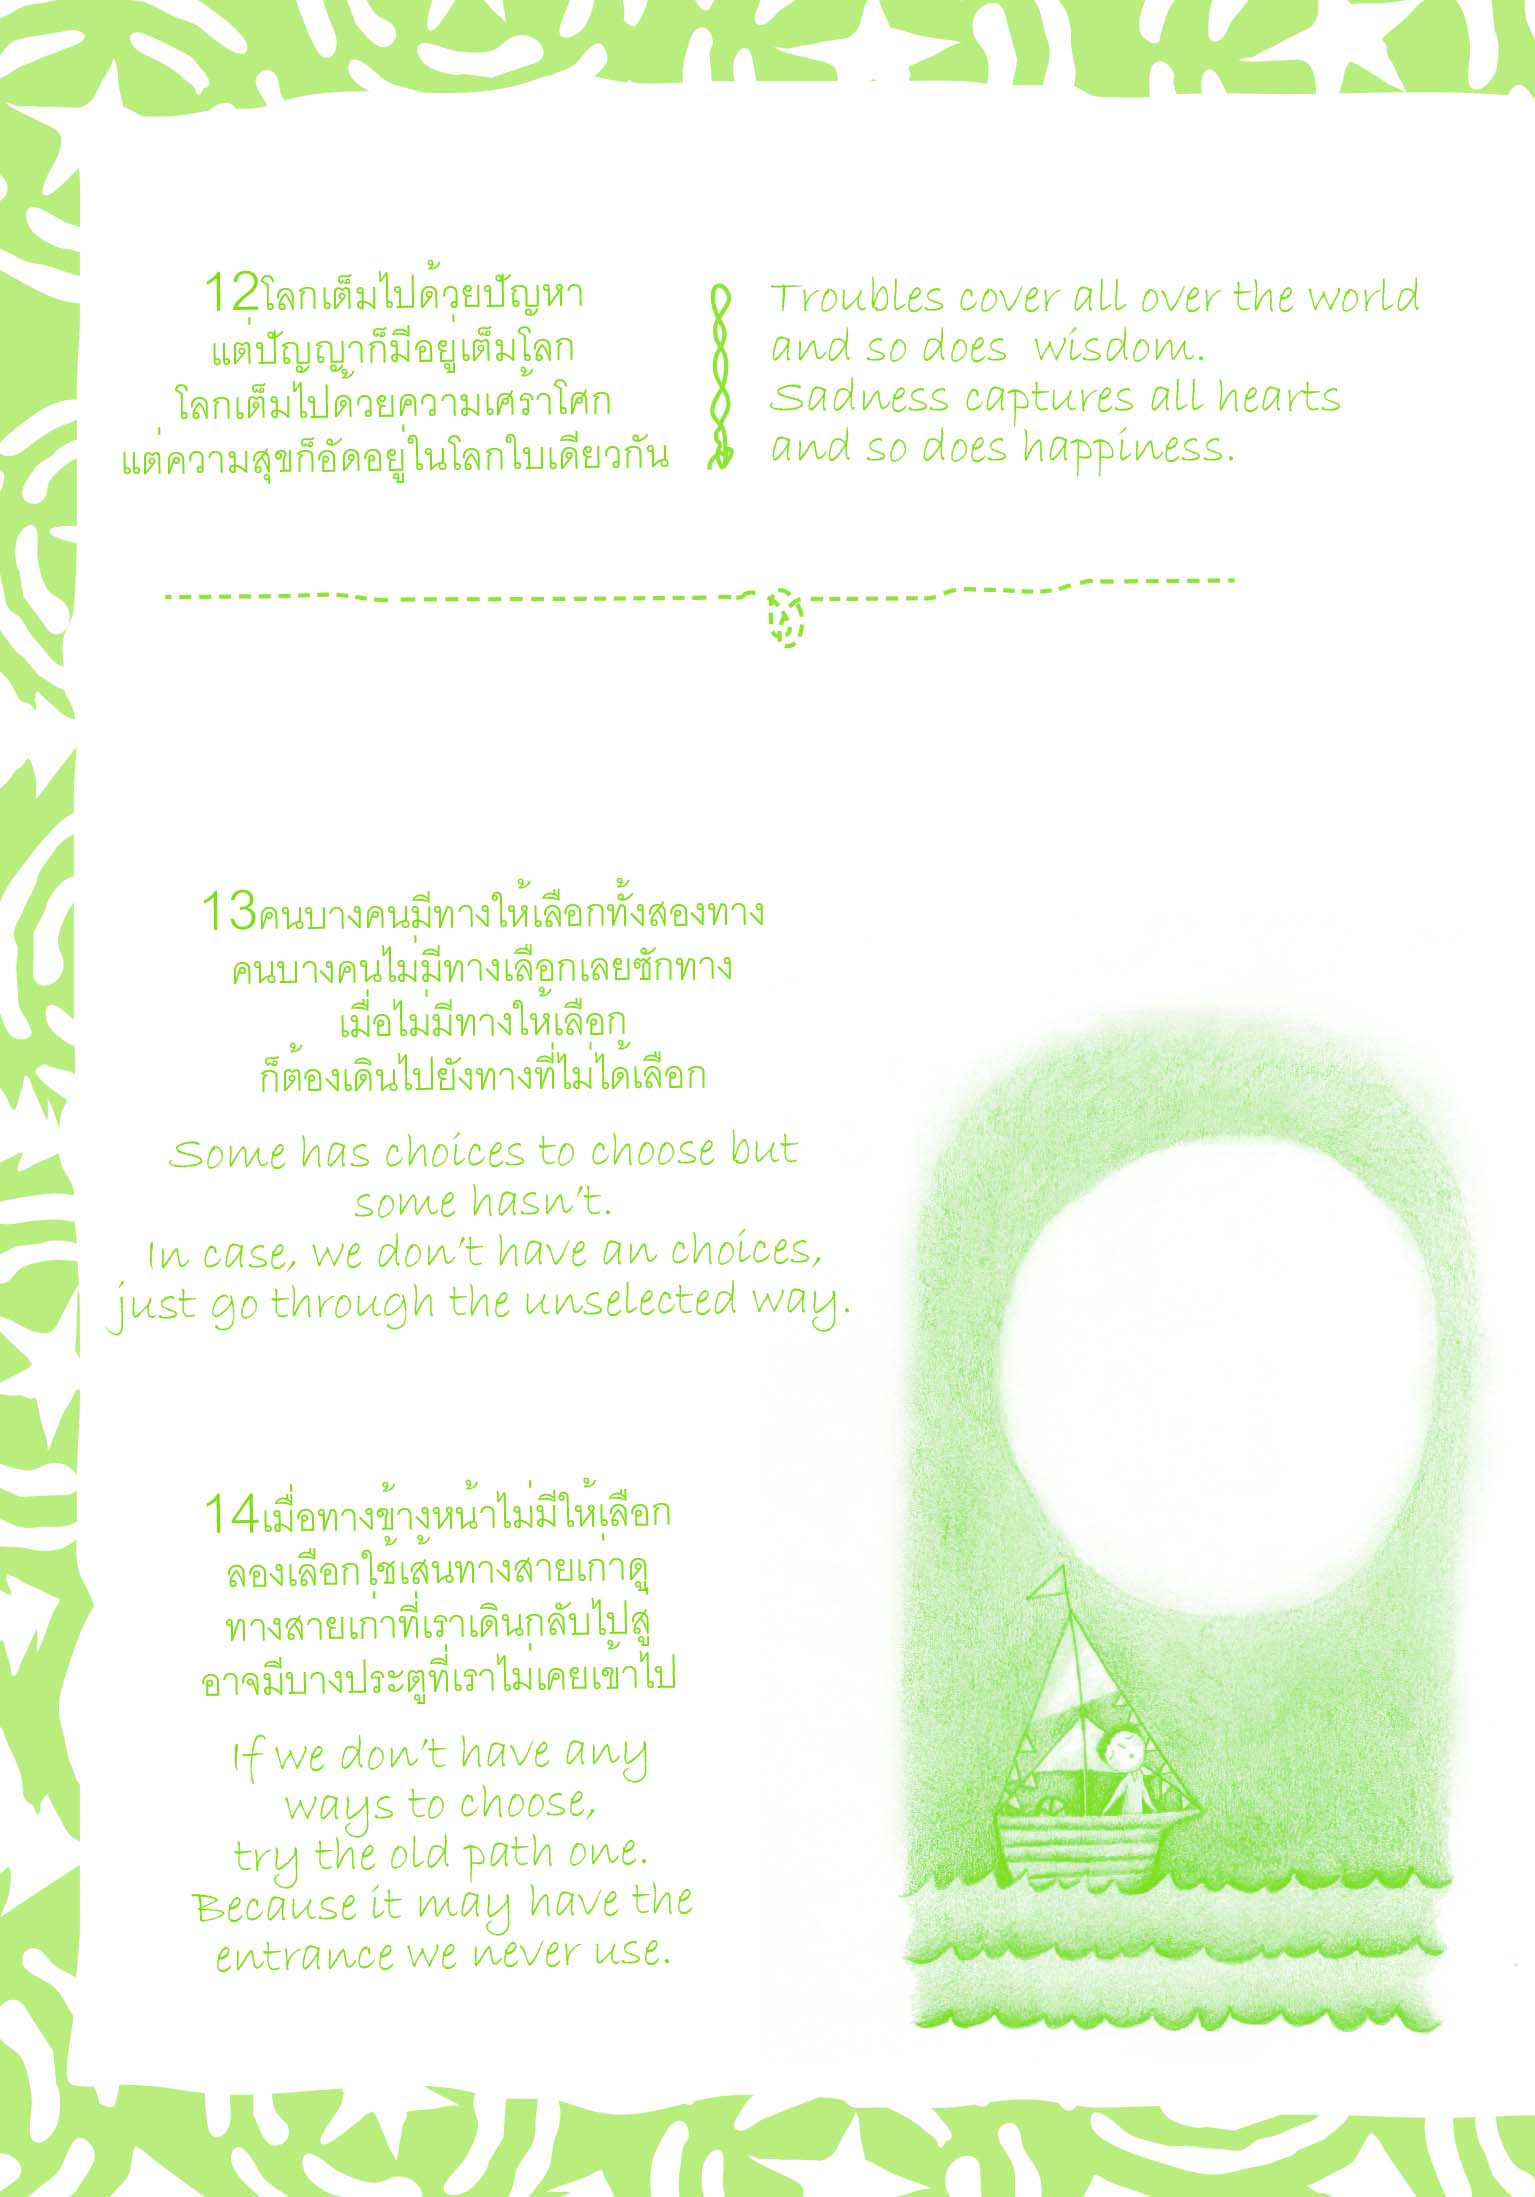 12โลกเต็มไปด้วยปัญหา
แต่ปัญญาก็มีอยู่เต็มโลก
โลกเต็มไปด้วยความเศร้าโศก
แต่ความสุขก็อัดอยู่ในโลกใบเดียวกัน
Troubles cover all over the world
and so does wisdom.
Sadness captures all hearts
and so does happiness.
13คนบางคนมีทางให้เลือกทั้งสองทาง
คนบางคนไม่มีทางเลือกเลยซักทาง
เมื่อไม่มีทางให้เลือก
ก็ต้องเดินไปยังทางที่ไม่ได้เลือก
Some has choices to choose but
some hasn't.
In case, we don't have an choices,
just go through the unselected way.
14เมื่อทางข้างหน้าไม่มีให้เลือก
ลองเลือกใช้เส้นทางสายเก่าดู
ทางสายเก่าที่เราเดินกลับไปสู่
อาจมีบางประตูที่เราไม่เคยเข้าไป
If we don't have any
ways to choose,
try the old path one.
Because it may have the
entrance we never use.